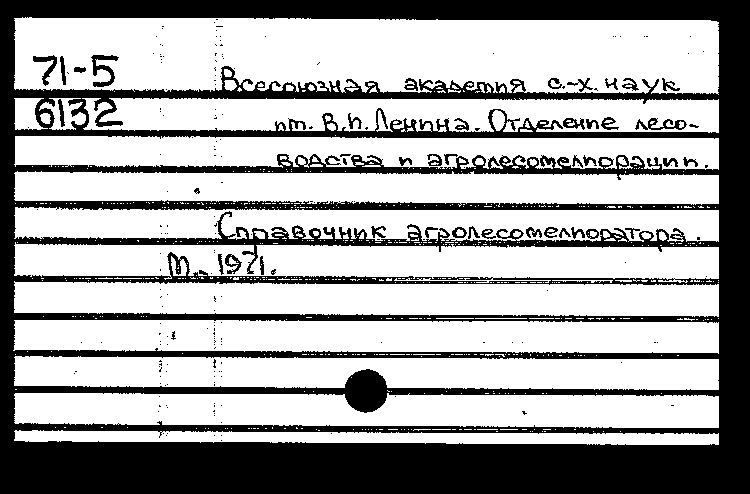 71-5 Всесоюзная академия с.-х. наук
6132 им. В.И. Ленина. Отделение лесо-
водства и агролесомелиорации.
Справочник агролесомелиоратора.
М., 1971.